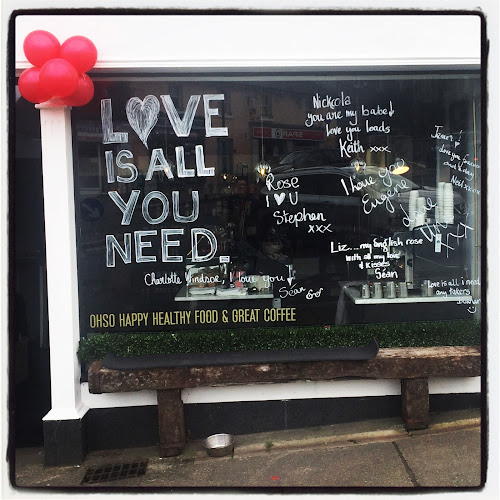 LOVE
IS ALL
YOU
NEED.
Nickcola
you are my babe
love you loads
Keith xxx
Rose
I ♥ U
Stephen
xxx
I love you
Eugene
love
Liz....my English rose
with all my love
& kisses
Séan
Charlotte Windsor, I love you!
Séan
Love is all i need
any takers
OHSO HAPPY HEALTHY FOOD & GREAT COFFEE
SPAR